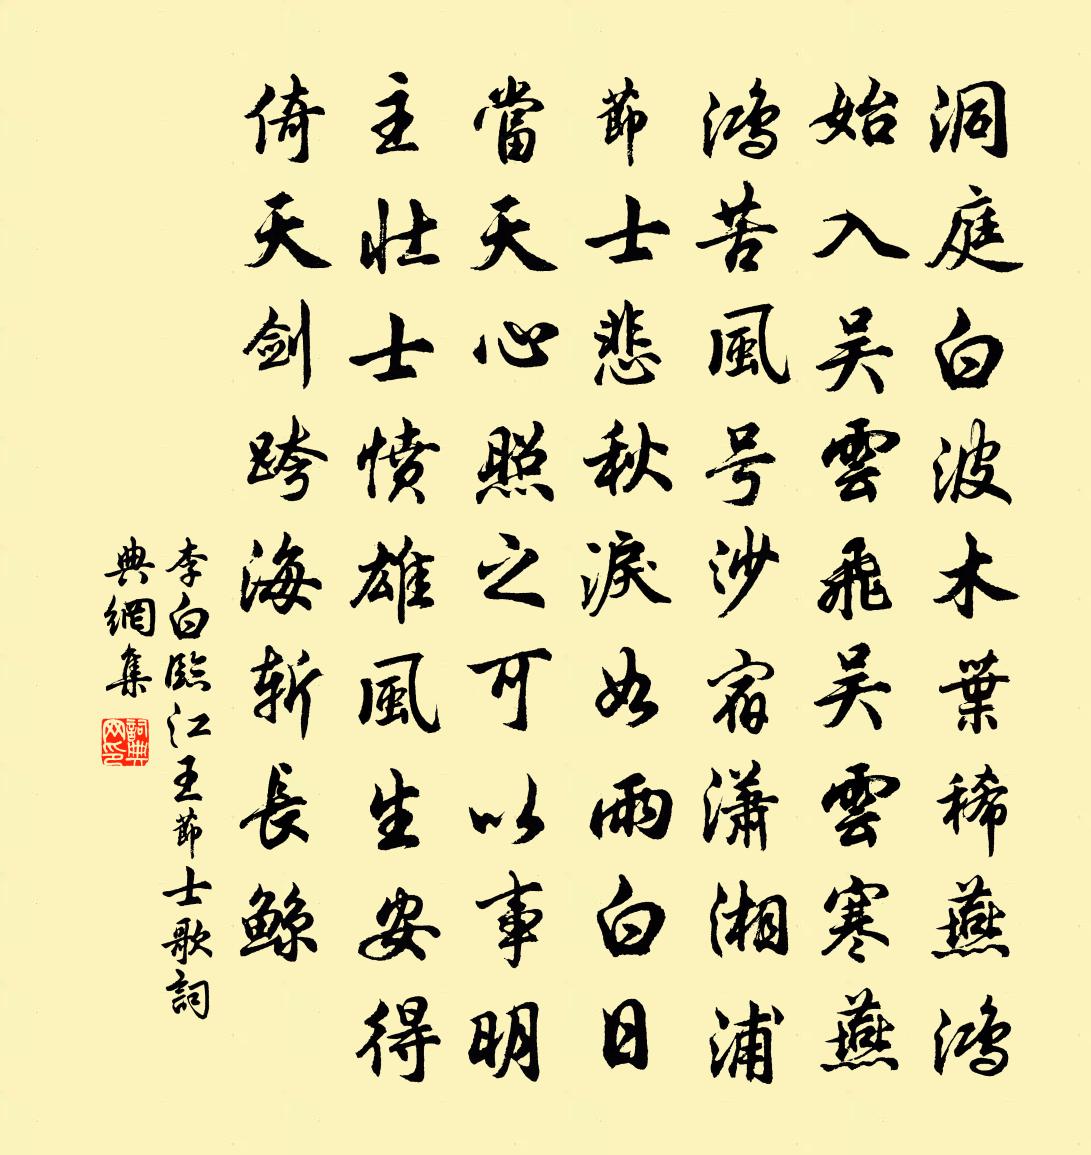 洞庭白波木葉稀燕鴻
始入吴雲飛吴雲寒燕
鴻苦風号沙宿瀟湘浦
節士悲秋淚如雨白日
當天心照之可以事明
主壮士憤雄風生安得
倚天剑跨海斬長鯨
李白臨江王節士歌詞
典網集
詞典网印